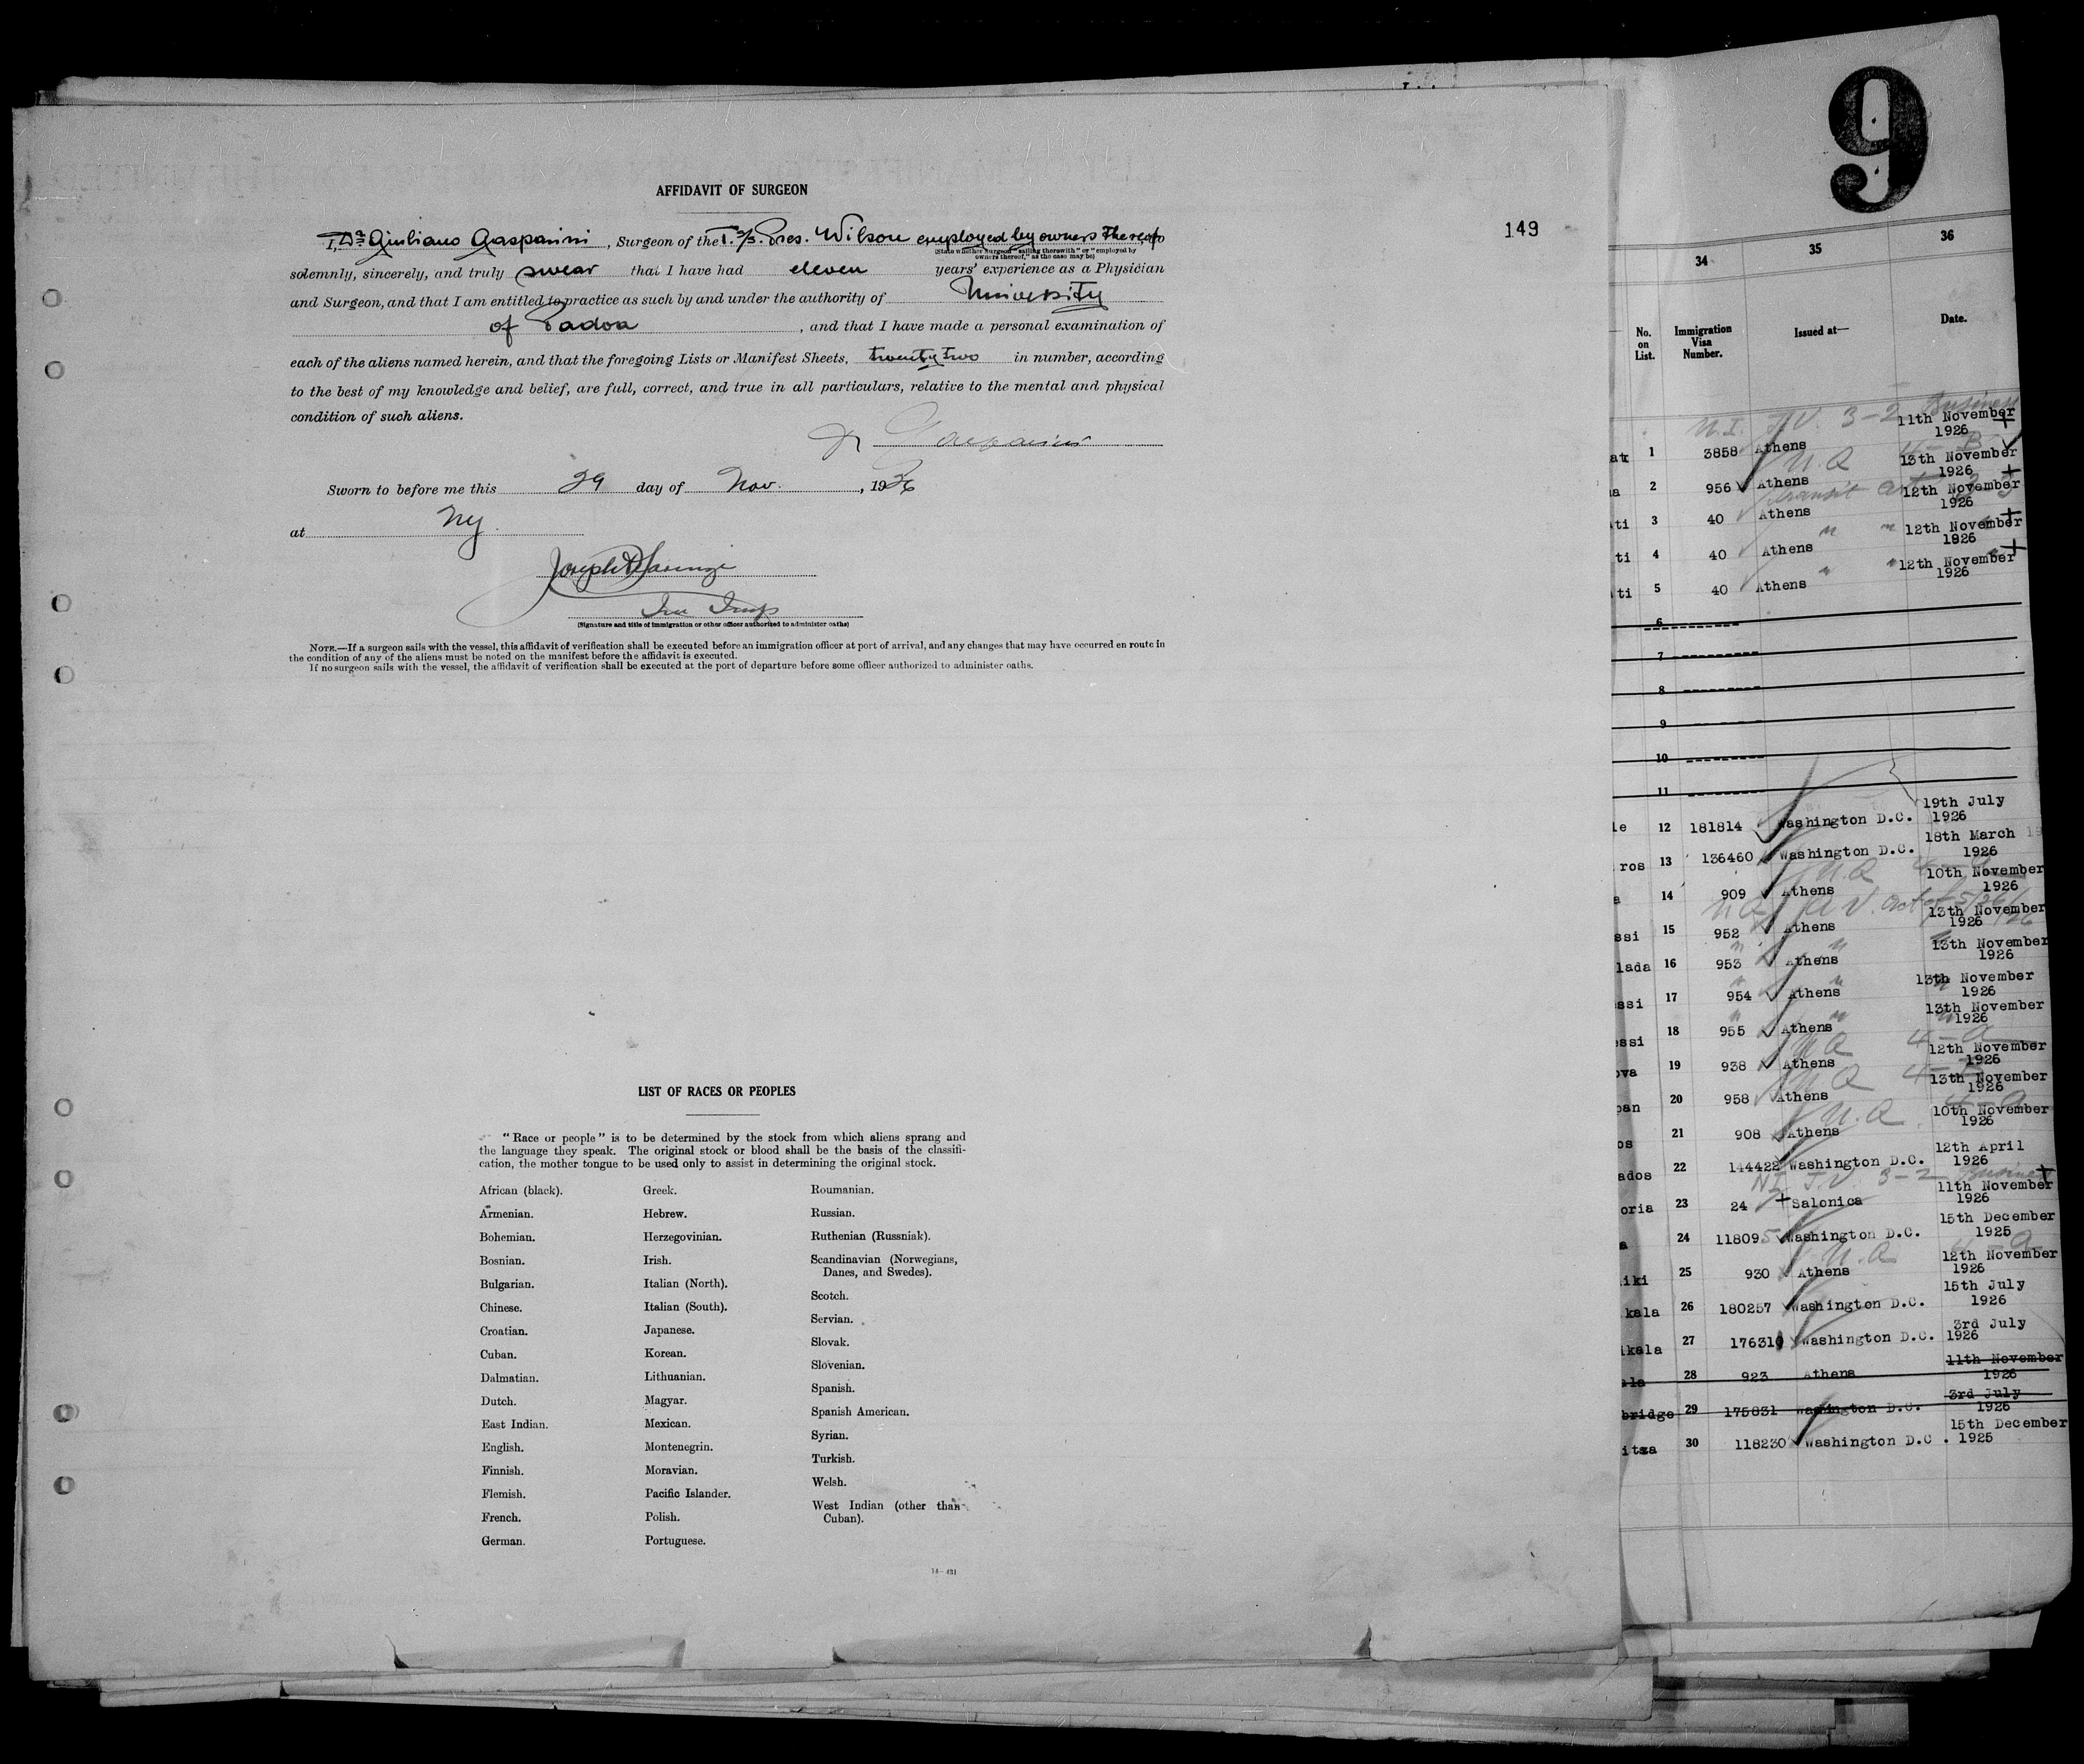 AFFIDAVIT OF SURGEON
149
I, Dr Giuliano Gasparini, Surgeon of the T. S/S. Pres. Wilson employed by owners Thereof, do
(State whether Surgeon "sailing therewith" or "employed by
owners thereof," as the case may be)
solemnly, sincerely, and truly swear that I have had eleven years' experience as a Physician
and Surgeon, and that I am entitled to practice as such by and under the authority of University
of Padoa, and that I have made a personal examination of
each of the aliens named herein, and that the foregoing Lists or Manifest Sheets, twenty two in number, according
to the best of my knowledge and belief, are full, correct, and true in all particulars, relative to the mental and physical
condition of such aliens.
Dr Gasparini
Sworn to before me this 29 day of Nov., 1926
at NY.
Joseph
Imm Insp
(Signature and title of immigration or other officer authorized to administer oaths)
NOTE.—If a surgeon sails with the vessel, this affidavit of verification shall be executed before an immigration officer at port of arrival, and any changes that may have occurred en route in
the condition of any of the aliens must be noted on the manifest before the affidavit is executed.
If no surgeon sails with the vessel, the affidavit of verification shall be executed at the port of departure before some officer authorized to administer oaths.
LIST OF RACES OR PEOPLES
"Race or people" is to be determined by the stock from which aliens sprang and
the language they speak. The original stock or blood shall be the basis of the classifi-
cation, the mother tongue to be used only to assist in determining the original stock.
African (black).
Armenian.
Bohemian.
Bosnian.
Bulgarian.
Chinese.
Croatian.
Cuban.
Dalmatian.
Dutch.
East Indian.
English.
Finnish.
Flemish.
French.
German.
Greek.
Hebrew.
Herzegovinian.
Irish.
Italian (North).
Italian (South).
Japanese.
Korean.
Lithuanian.
Magyar.
Mexican.
Montenegrin.
Moravian.
Pacific Islander.
Polish.
Portuguese.
Roumanian.
Russian.
Ruthenian (Russniak).
Scandinavian (Norwegians,
Danes, and Swedes).
Scotch.
Servian.
Slovak.
Slovenian.
Spanish.
Spanish American.
Syrian.
Turkish.
Welsh.
West Indian (other than
Cuban).
14—431
9
34 35 36
No.
on
List.
Immigration
Visa
Number.
Issued at—
Date.
N.I. T.V. 3-2 Business
1 3858 Athens 11th November 1926
N.Q 4-B
2 956 Athens 13th November 1926
transit
ti 3 40 Athens 12th November 1926
ti 4 40 Athens " " 12th November 1926
ti 5 40 Athens " " 12th November 1926
6
7
8
9
10
11
le 12 181814 Washington D.C. 19th July 1926
ros 13 136460 Washington D.C. 18th March 1926
N.Q
a 14 909 Athens 10th November 1926
ssi 15 952 Athens 13th November 1926
lada 16 953 Athens 13th November 1926
ssi 17 954 Athens 13th November 1926
ssi 18 955 Athens 13th November 1926
NQ 4-a
ova 19 938 Athens 12th November 1926
NQ
pan 20 958 Athens 13th November 1926
N.Q 4-a
os 21 908 Athens 10th November 1926
ados 22 144422 Washington D.C. 12th April 1926
NI T.V. 3-2 Business
oria 23 24 Salonica 11th November 1926
a 24 118095 Washington D.C. 15th December 1925
N.Q
iki 25 930 Athens 12th November 1926
kala 26 180257 Washington D.C. 15th July 1926
ikala 27 176310 Washington D.C. 3rd July 1926
ala 28 923 Athens 11th November 1926
bridge 29 175831 Washington D.C. 3rd July 1926
itsa 30 118230 Washington D.C. 15th December 1925